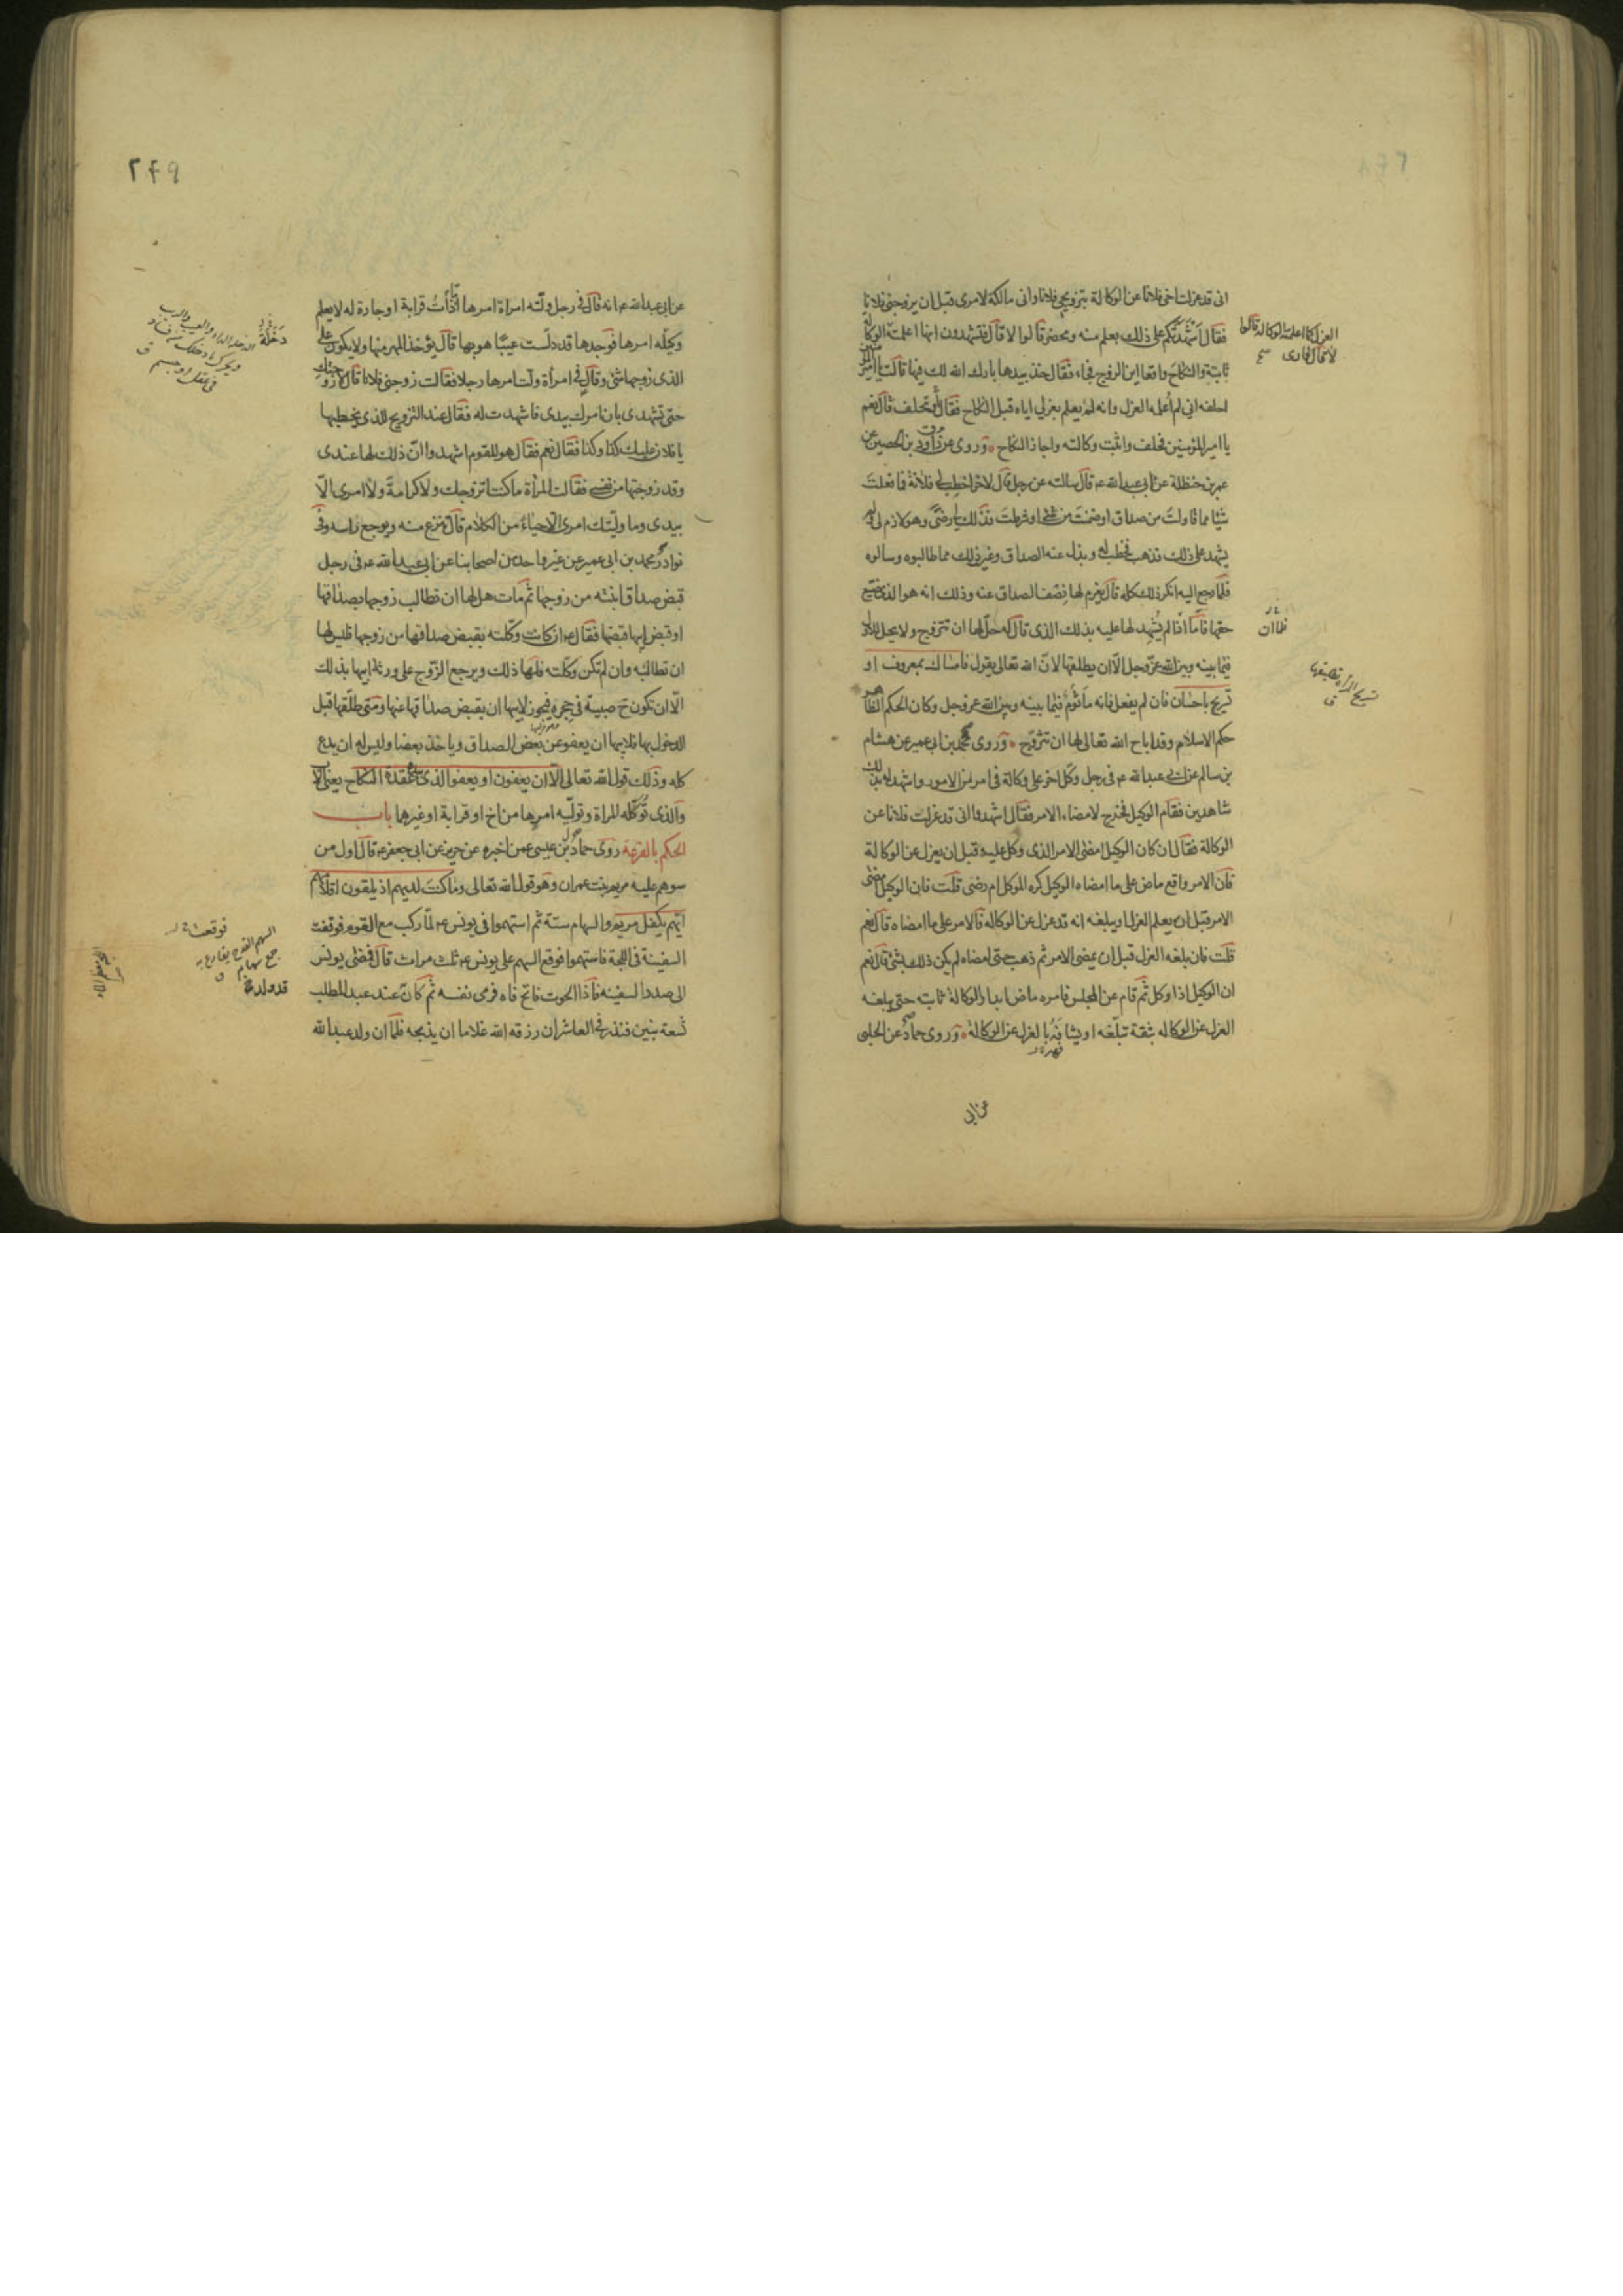 انى قد عزلت اخى فلانا عن الوكالة بتزويجى فلانا وانى مالكة لامرى قبل ان يزوجنى فلانا
فقال اشهدتكم على ذلك بعلم منه ومحضر قالوا لا قال فتشهدون انها اعلمته الوكالة
العزل كما اعلمته الوكالة قالوا
لا قال فارى
ثابتة والنكاح واقعا اين الزوج فجاء فقال خذ بيدها بارك الله لك فيها قالت يا امير المؤمنين
احلفه انى لم اعلمه العزل وانه لم يعلم بعزلى اياه قبل النكاح فقال وتحلف قال نعم
يا امير المؤمنين فحلف واثبت وكالته واجاز النكاح وروى عن داود بن الحصين عن
عمر بن حنظلة عن ابى عبدالله ع قال سالته عن رجل قال لاخر اخطب لى فلانة فما فعلت
شيئا مما قاولت من صداق او ضمنت من شئ او شرطت فذلك لى رضى وهو لازم لى ولم
يشهد على ذلك فذهب فخطب له وبذل عنه الصداق وغير ذلك مما طالبوه وسالوه
فلما رجع اليه انكر ذلك كله قال يغرم لها نصف الصداق عنه وذلك انه هو الذى ضيع
حقها فاما اذا لم يشهد لها عليه بذلك الذى قال له حل لها ان تتزوج ولا يحل للاول
فلما ان
فيما بينه وبين الله عز وجل الا ان يطلقها لان الله تعالى يقول فامساك بمعروف او
تسريح المرأة تطليقها
ق
تسريح باحسان فان لم يفعل فانه ماثوم فيما بينه وبين الله عز وجل وكان الحكم الظاهر
حكم الاسلام وقد اباح الله تعالى لها ان تتزوج وروى محمد بن ابى عمير عن هشام
بن سالم عن ابى عبدالله ع فى رجل وكل اخر على وكالة فى امر من الامور واشهد له بذلك
شاهدين فقام الوكيل فخرج لامضاء الامر فقال اشهدوا انى قد عزلت فلانا عن
الوكالة فقال ان كان الوكيل امضى الامر الذى وكل عليه قبل ان يعزل عن الوكالة
فان الامر واقع ماض على ما امضاه الوكيل كره الموكل ام رضى قلت فان الوكيل امضى
الامر قبل ان يعلم العزل او يبلغه انه قد عزل عن الوكاله فالامر على ما امضاه قال نعم
قلت فان بلغه العزل قبل ان يمضى الامر ثم ذهب حتى امضاه لم يكن ذلك بشئ قال نعم
ان الوكيل اذا وكل ثم قام عن المجلس فامره ماض ابدا والوكالة ثابته حتى يبلغه
العزل عن الوكاله بثقة تبلغه او يشافه بالعزل عن الوكالة وروى حماد عن الحلبى
عن ابى
٢٤٩
عن ابى عبدالله ع انه قال فى رجل ولته امراة امرها اما ذات قرابة او جارة له لا يعلم
دخلة
وكيله امرها فوجدها قد دلست عيبا هو بها قال يؤخذ المهر منها ولا يكون على
الذى زوجها شئ وقال فى امرأة ولت امرها رجلا فقالت زوجنى فلانا قال لا زوجتك
حتى تشهدى بان امرك بيدى فاشهدت له فقال عند التزويج للذى يخطبها
يا فلان عليك كذا وكذا فقال نعم فقال هو للقوم اشهدوا ان ذلك لها عندى
وقد زوجتها من نفسى فقالت المرأة ما كنت اتزوجك ولا كرامة ولا امرى الا
بيدى وما وليتك امرى الا حياء من الكلام قال تنزع منه ويوجع راسه وفى
نوادر محمد بن ابى عمير عن غير واحد من اصحابنا عن ابى عبدالله ع فى رجل
قبض صداق ابنته من زوجها ثم مات هل لها ان تطالب زوجها بصداقها
او قبض ابيها قبضها فقال ع ان كانت وكلته بقبض صداقها من زوجها فليس لها
ان تطالبه وان لم تكن وكلته فلها ذلك ويرجع الزوج على ورثة ابيها بذلك
الا ان تكون ح صبية فى حجره فيجوز لابيها ان يقبض صداقها عنها ومتى طلقها قبل
الدخول بها فلابيها ان يعفو عن بعض الصداق وياخذ بعضا وليس له ان يدع
كله وذلك قول الله تعالى الا ان يعفون او يعفو الذى بيده عقدة النكاح يعنى الاب
والذى توكله المراة وتوليه امرها من اخ او قرابة او غيرهما باب
الحكم بالقرعة روى حماد بن عيسى عمن اخبره عن حريز عن ابى جعفر ع قال اول من
سوهم عليه مريم بنت عمران وهو قول الله تعالى وما كنت لديهم اذ يلقون اقلامهم
ايهم يكفل مريم والسهام ستة ثم استهموا فى يونس ع لما ركب مع القوم فوقفت
فوقعت
السفينة فى اللجة فاستهموا فوقع السهم على يونس ع ثلث مرات قال فمضى يونس
الى صدد السفينه فاذا الحوت فاتح فاه فرمى نفسه ثم كان عند عبد المطلب
تسعة بنين فنذر فى العاشر ان رزقه الله غلاما ان يذبحه فلما ان ولد عبدالله